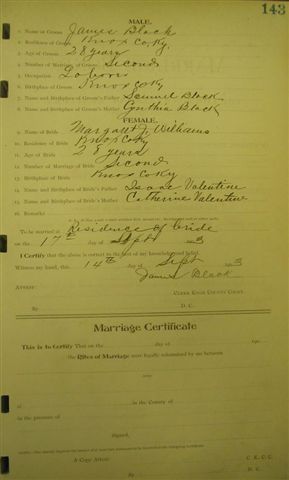 143
MALE.
1. Name of Groom James Black
2. Residence of Groom Knox Co Ky.
3. Age of Groom 28 years
4. Number of Marriage of Groom Second
5. Occupation Labor
6. Birthplace of Groom Knox Co Ky
7. Name and Birthplace of Groom's Father Samuel Black
8. Name and Birthplace of Groom's Mother Cynthia Black
FEMALE.
9. Name of Bride Margaret J Williams
10. Residence of Bride Knox Co Ky
11. Age of Bride 28 years
12. Number of Marriage of Bride Second
13. Birthplace of Bride Knox Co Ky
14. Name and Birthplace of Bride's Father Isaac Valentine
15. Name and Birthplace of Bride's Mother Catherine Valentine
16. Remarks
To be married at Residence of bride
on the 17th day of Sept 3
I Certify that the above is correct to the best of my knowledge and belief.
Witness my hand, this 14th day of Sept 3
James Black
Attest:
Clerk Knox County Court.
By D. C.
Marriage Certificate
This is to Certify That on the day of 190
the Rites of Marriage were legally solemnized by me between
and
at in the County of
in the presence of
Signed,
A Copy Attest: C. K. C. C.
By D. C.